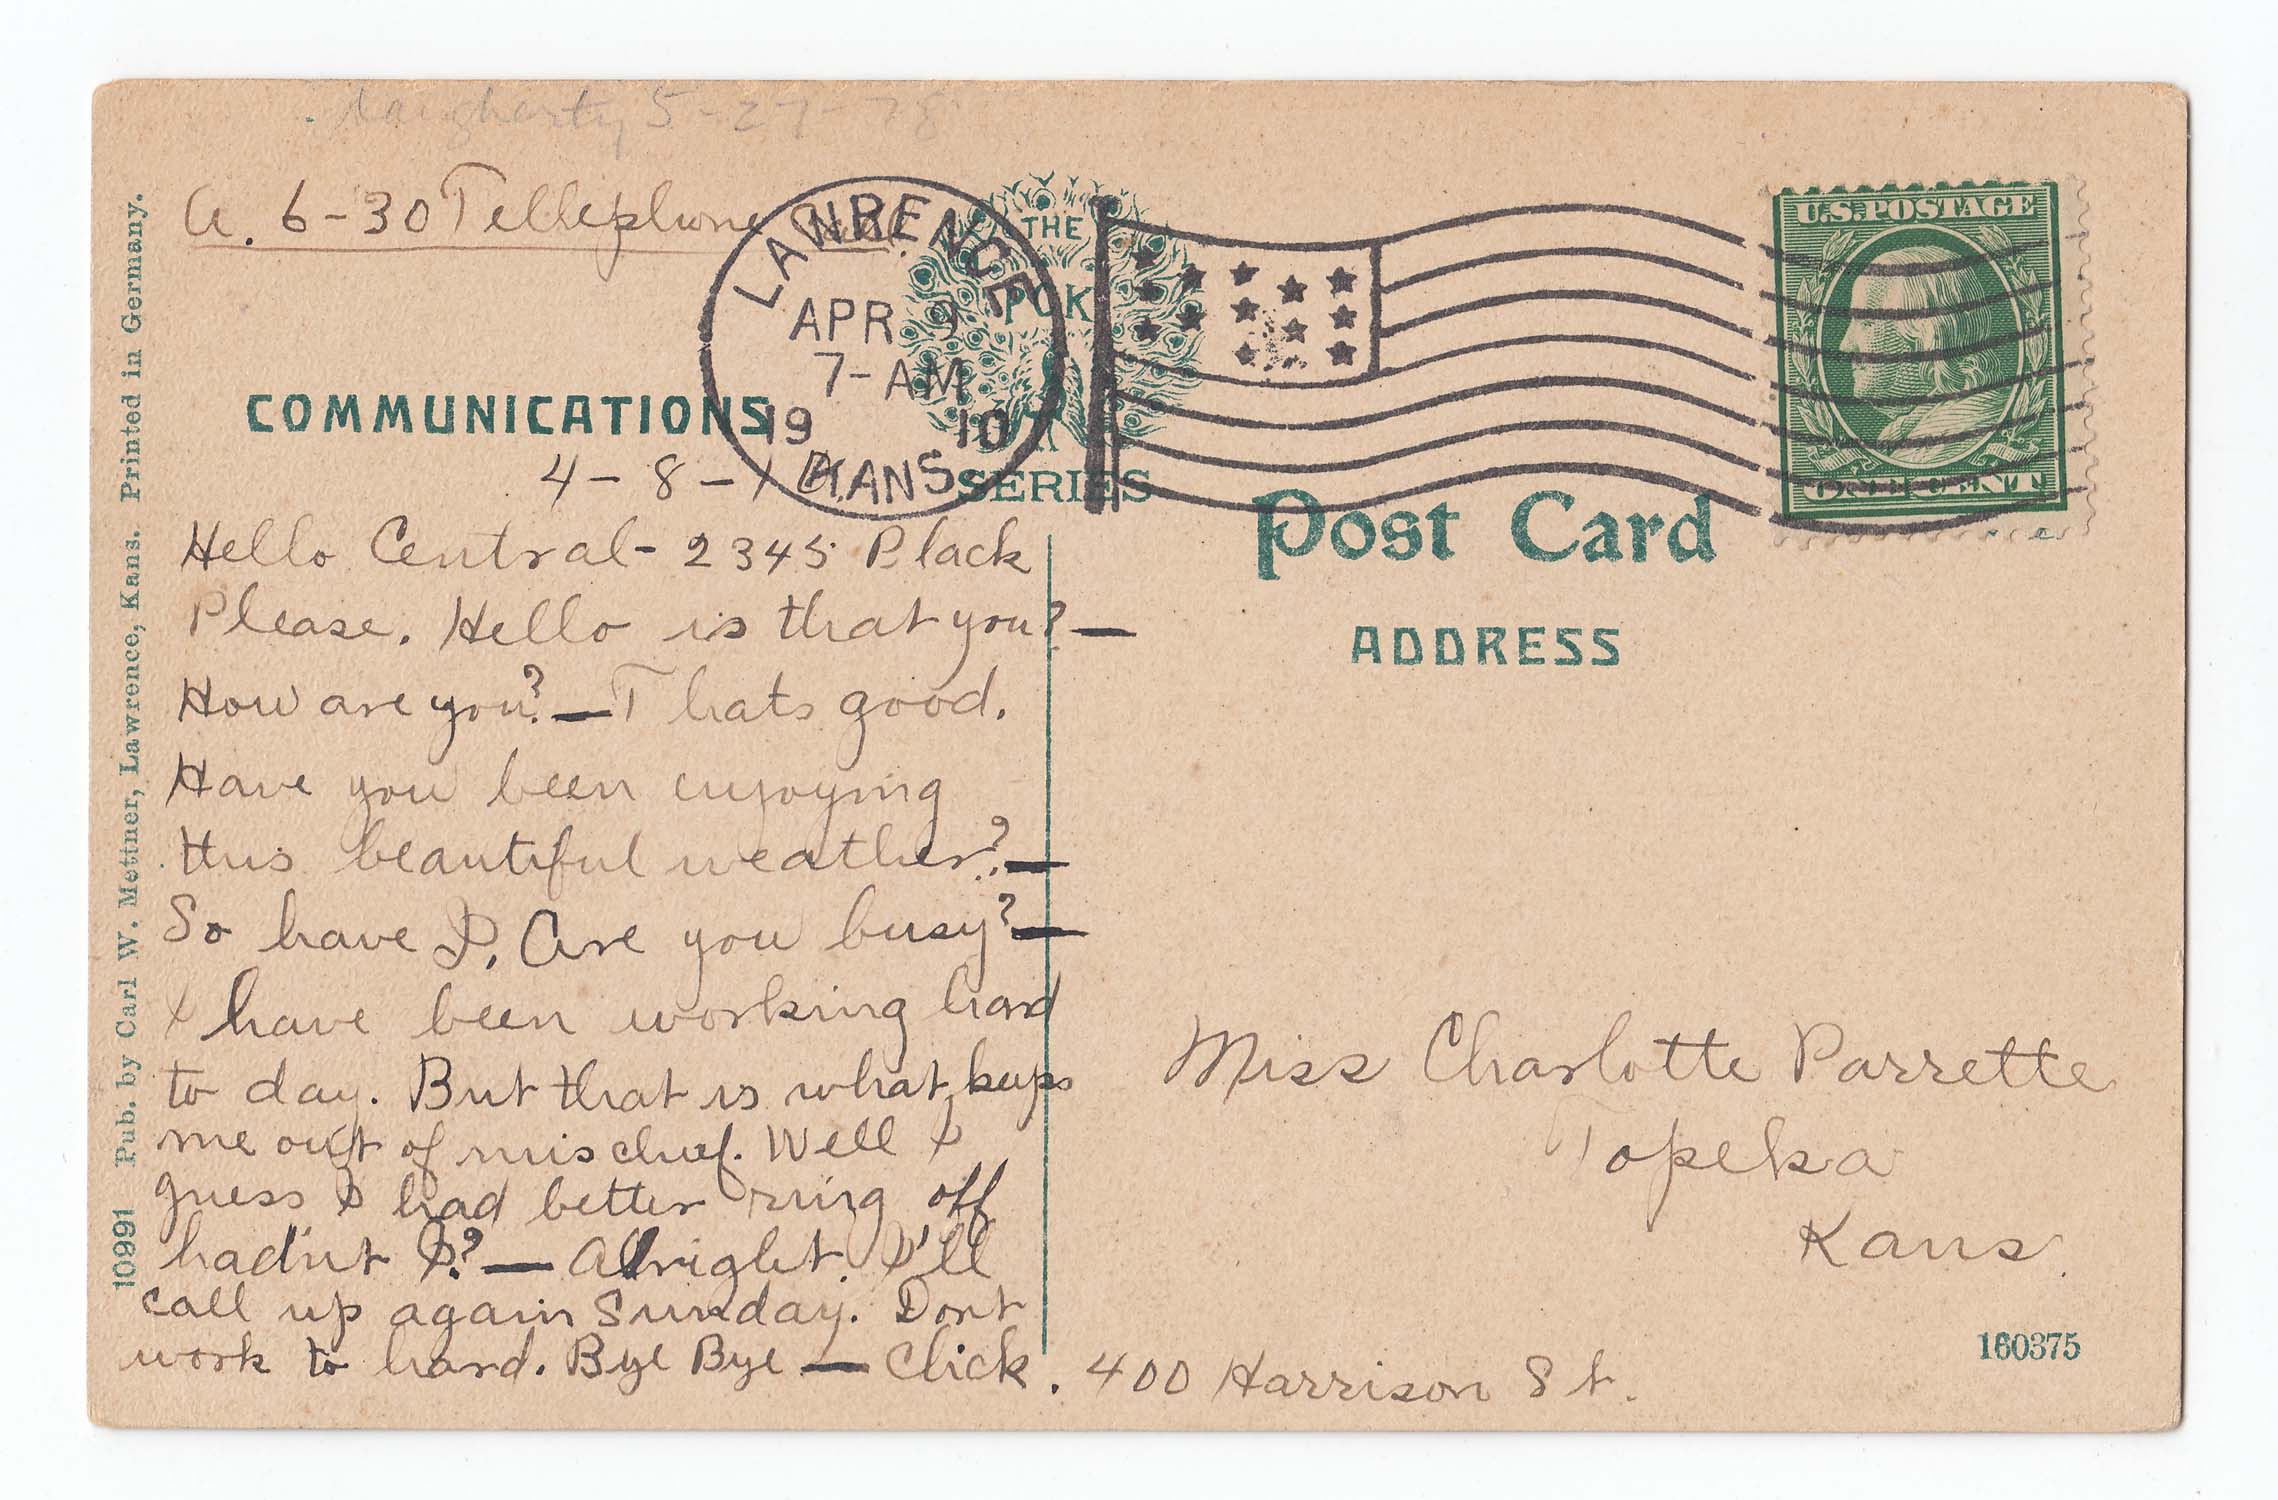 Daugherty 5-27-78
A. 6-30 Tellephone Call.
LAWRENCE
APR 9
7-AM
19 10
KANS
THE
SERIES
U.S. POSTAGE
ONE CENT
COMMUNICATIONS
Post Card
ADDRESS
4-8-10.
Hello Central- 2345 Black
Please. Hello is that you? —
How are you? — Thats good.
Have you been enjoying
this beautiful weather? —
So have I. Are you busy? —
I have been working hard
to day. But that is what keeps
me out of mischief. Well I
guess I had better ring off
had'nt I? — Allright. I'll
call up again Sunday. Dont
work to hard. Bye Bye — Click.
Miss Charlotte Parrette
Topeka
Kans.
400 Harrison St.
160375
10991 Pub. by Carl W. Mettner, Lawrence, Kans. Printed in Germany.